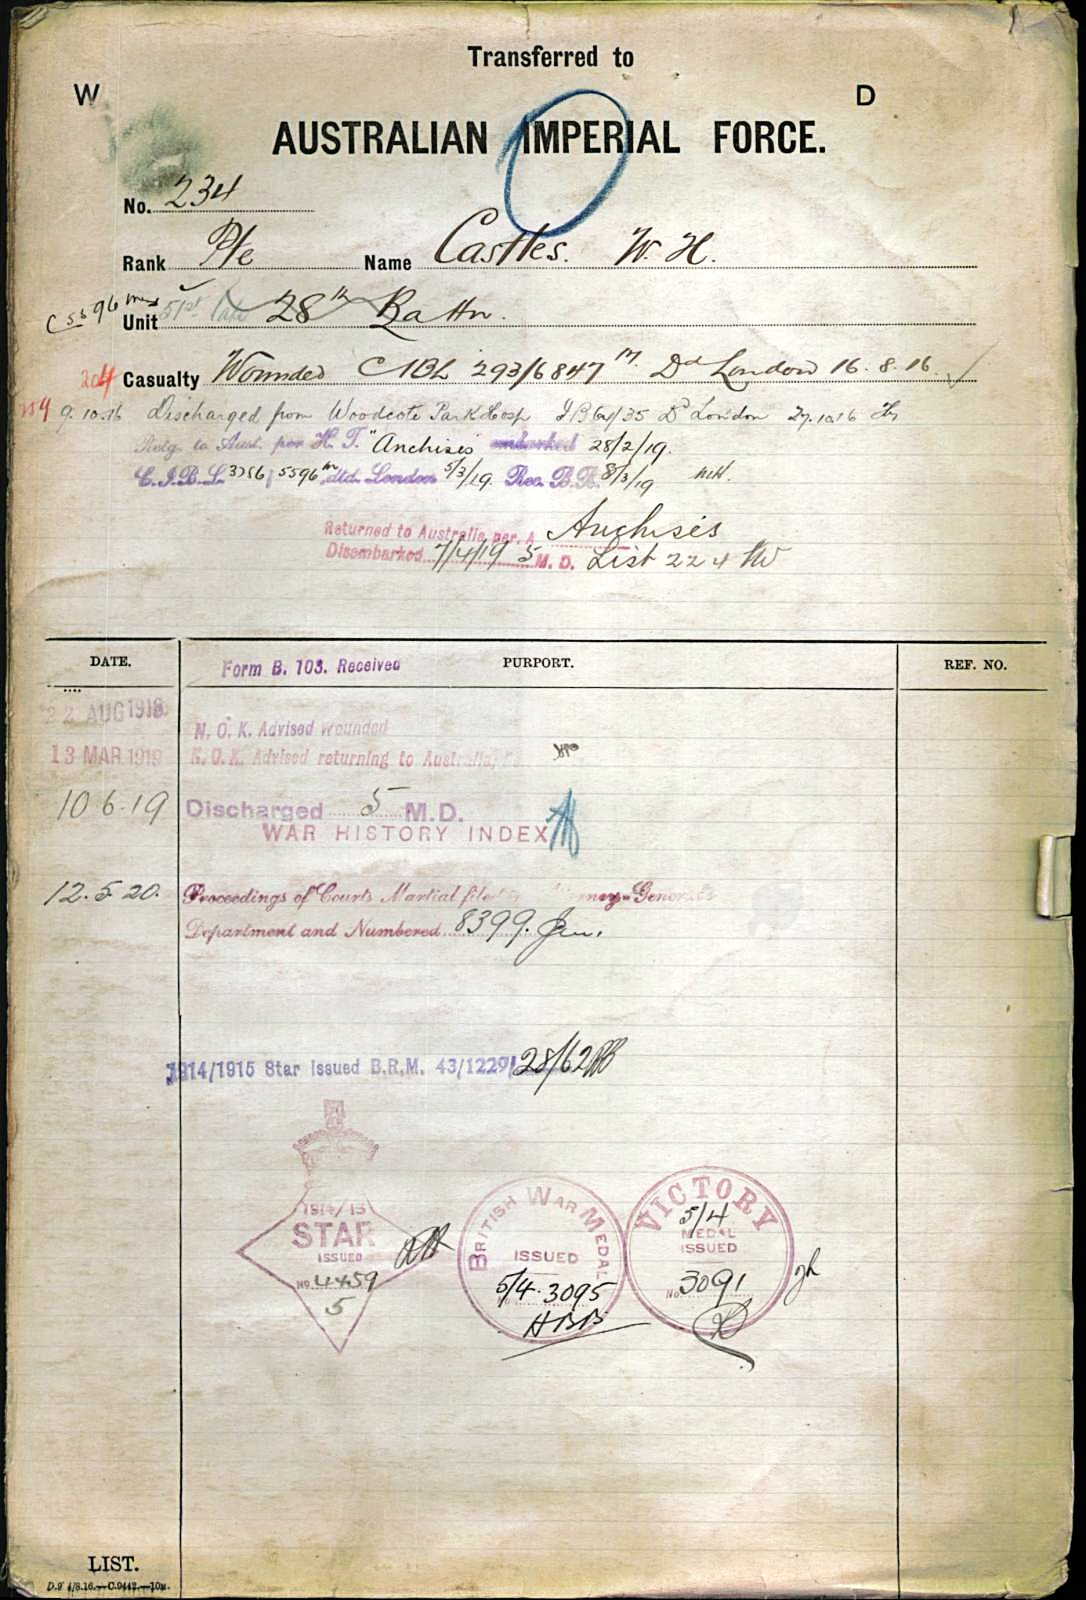 Transferred to
W D
AUSTRALIAN IMPERIAL FORCE.
No. 234
Rank Pte Name Castles. W. H.
C 5596
Unit 51st late 28th Battn.
204 Casualty Wounded CABL 293/6847 M. Dd London 16.8.16
9.10.16 Discharged from Woodcote Park Hosp Dd London 27.10.16
Retg. to Aust. per H. T. "Anchises" embarked 28/2/19.
5596 dtd. London 5/3/19. Rec. B.R. 8/3/19
Returned to Australia per. Anchises
Disembarked 7/4/19 5 M. D. List 224
DATE. Form B. 103. Received PURPORT. REF. NO.
22 AUG 1918 N. O. K. Advised Wounded
13 MAR 1919 N. O. K. Advised returning to Australia,
10.6.19 Discharged 5 M.D.
WAR HISTORY INDEX
12.5.20. Proceedings of Courts Martial General's
Department and Numbered 8399.
1914/1915 Star Issued B.R.M. 43/12291 28/6
1914/15
STAR
ISSUED
No 4459
5
BRITISH WAR MEDAL
ISSUED
5/4. 3095
HBB
VICTORY
5/4
MEDAL
ISSUED
No 3091
LIST.
D.9 4/8.16.—C.9442.—10M.